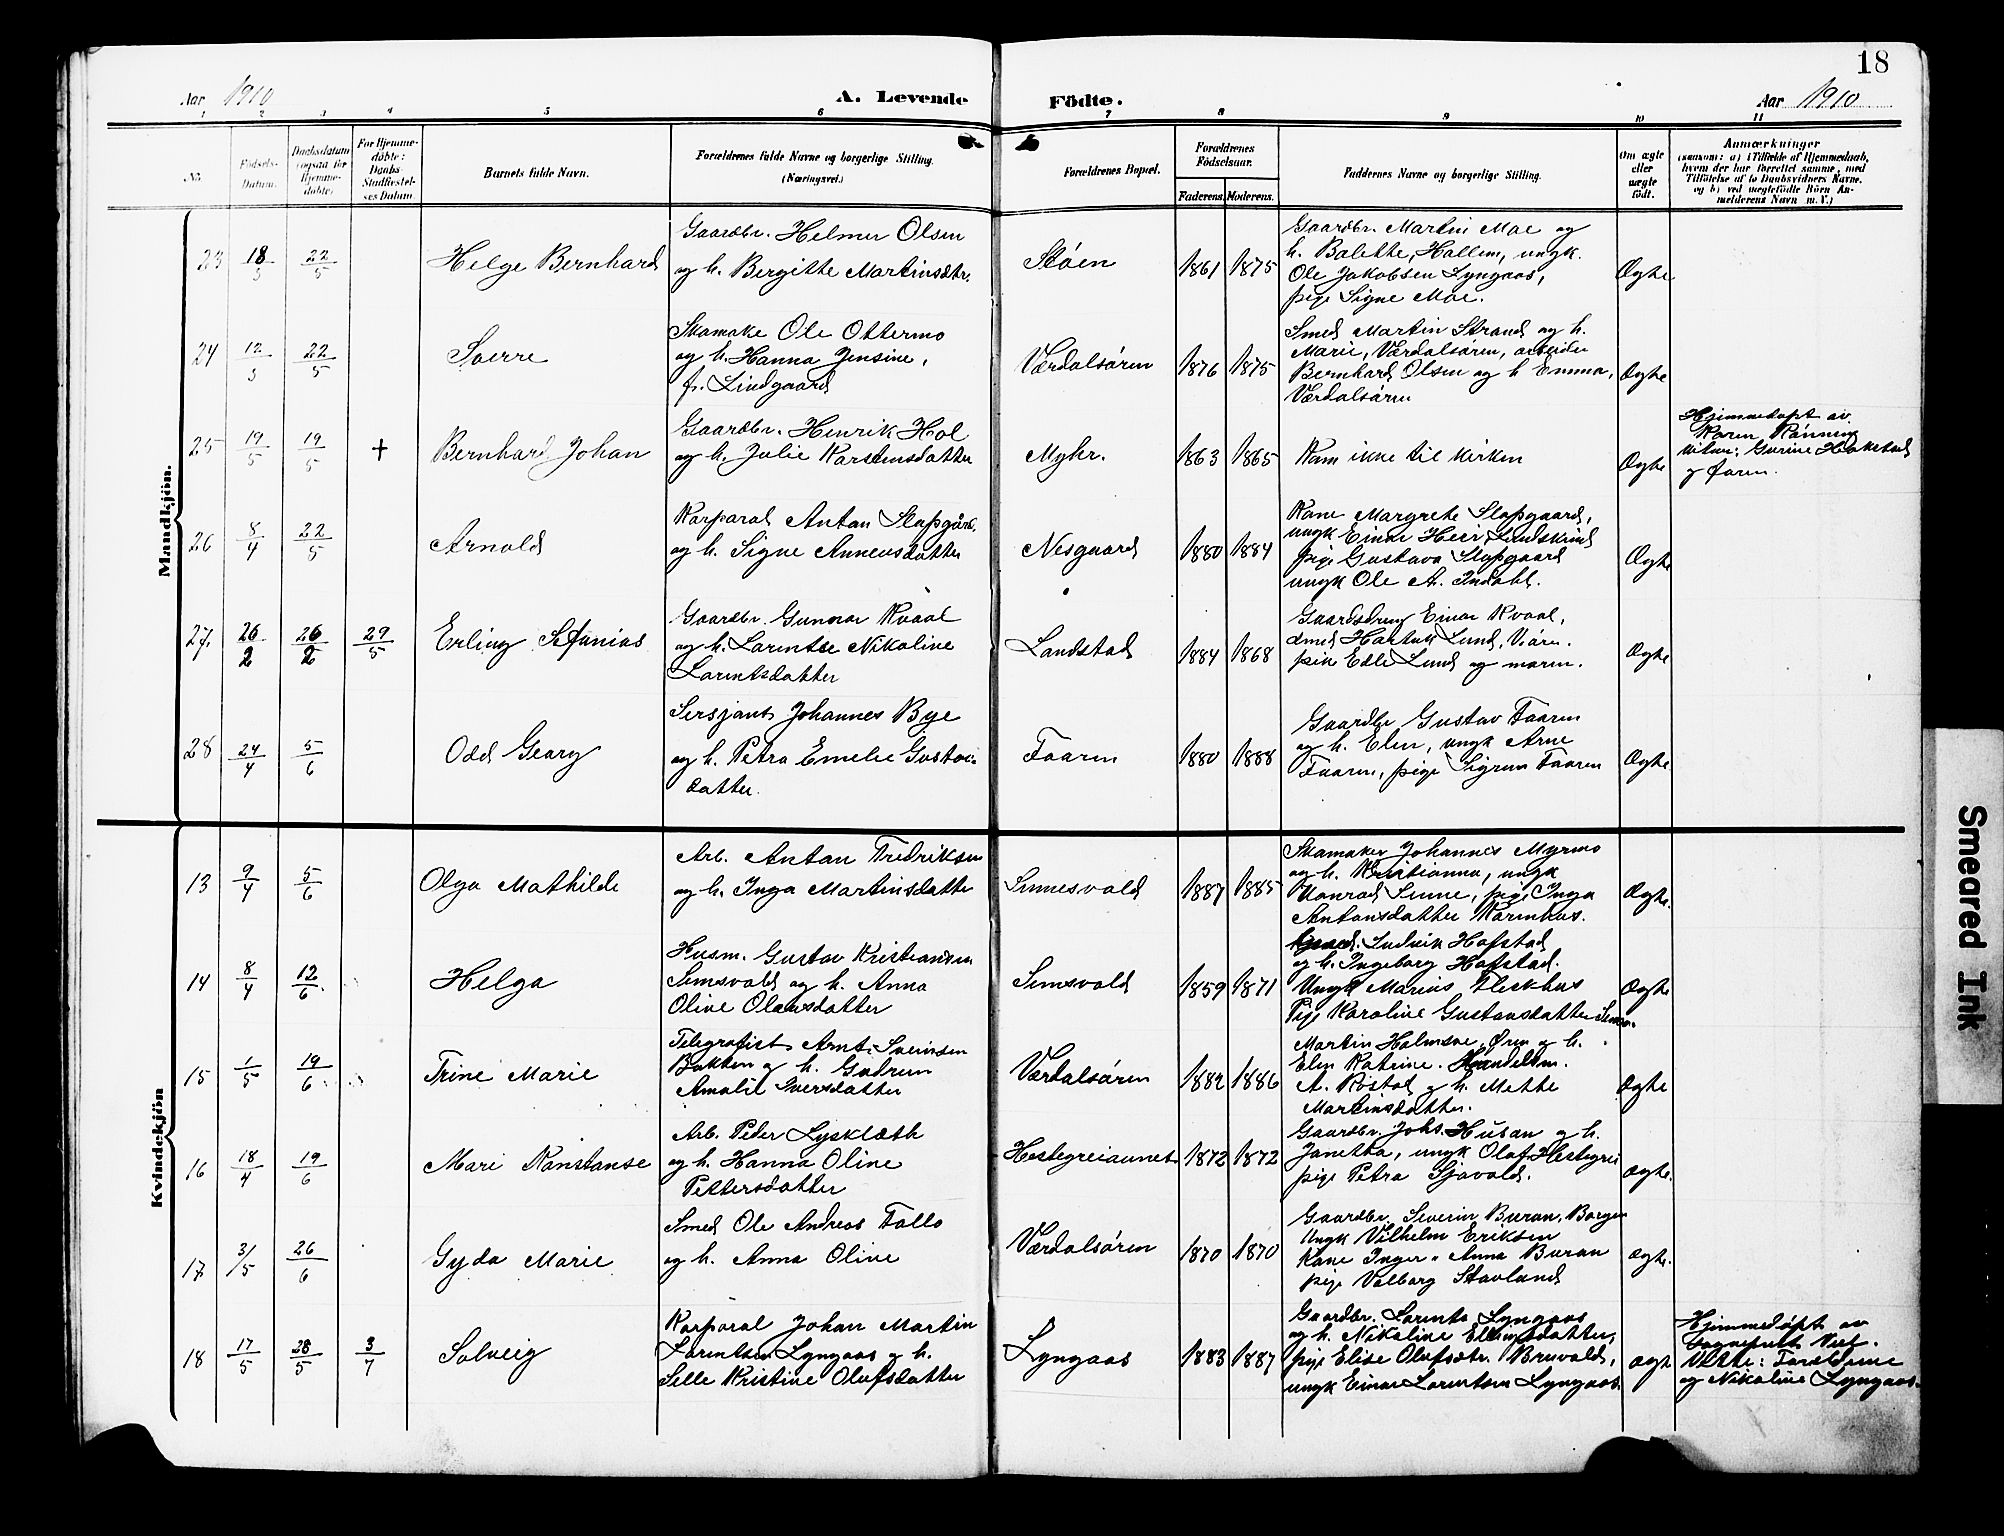 18
Aar 1910
A. Levende Födte.
Aar 1910
1 2 3 4 5 6 7 8 9 10 11
No.
Födsels-Datum.
Daabsdatum (ogsaa for Hjemme-döbte)
For Hjemme-döbte: Daabs-Stadfæstel-ses Datum.
Barnets fulde Navn.
Forældrenes fulde Navne og borgerlige Stilling.
(Næringsvei.)
Forældrenes Bopæl.
Forældrenes Födselsaar.
Faderens. Moderens.
Faddernes Navne og borgerlige Stilling.
Om ægte eller uægte födt.
Anmærkninger
(saasom: a) i Tilfælde af Hjemmedaab, hvem der har forrettet samme, med Tilföielse af to Daabsvidners Navne, og b) ved uægtefödte Börn An-melderens Navn m. V.)
Mandkjön.
23 18/3 22/5 Helge Bernhard
Gaardbr. Helmer Olsen
og h. Bergitte Martinsdtr.
Stöen 1861 1875
Gaardbr. Martin Moe og
h. Balette, Hallem, ungk.
Ole Jakobsen Lyngaas,
pige Signe Moe.
Ægte
24 12/3 22/5 Sverre
Skomake Ole Ottermo
og h. Hanna Jensine,
f. Lindgaard
Værdalsören 1876 1875
Smed Martin Strand og h.
Marie, Værdalsören, arbeider
Bernhard Olsen og h Emma,
Værdalsören
Ægte
25 19/5 19/5 + Bernhard Johan
Gaardbr. Henrik Hol
og h. Julie Karstensdatter
Myhr. 1863 1865
Kom ikke til kirken
Ægte
Hjemmedöpt av
Karen Rönning
vitner: Gurine Hokstad
og faren.
26 8/4 22/5 Arnold
Korporal Anton Slapgård
og h. Signe Anneusdatter
Nesgaard 1880 1884
Kone Margrete Slapgaard,
ungk Einar Heir
pige Gustava Slapgaard
ungk Ole A. Indahl.
Ægte
27. 26/2 26/2 29/5 Erling Stfanias
Gaardbr. Gunnar Kvaal
og h. Larentse Nikoline
Larentsdatter
Landstad 1884 1868
Gaardsdreng Einar Kvaal,
Lund,
pike Edle Lund og moren.
Ægte
28 24/4 5/6 Odd Georg
Sersjant Johannes Bye
og h. Petra Emelie Gustav-
datter.
Faaren 1880 1888
Gaardbr Gustav Faaren
og h. Elen, ungk Arne
Faaren, pige Sigrun Faaren
Ægte
Kvindekjön
13 9/4 5/6 Olga Mathilde
Arb. Anton Fredriksen
og h. Inga Martinsdatter
Sinnesvald 1887 1885
Skomaker Johannes Myrmo
og h. Kristianna, ungk
Konrad Sinne, pige Inga
Antonsdatter Karinhus.
Ægte.
14 8/4 12/6 Helga
Husm. Gustav Kristiansen
Semsvald og h. Anna
Oline Olausdatter
Semsvald 1859 1871
Ludvik Hofstad
og h. Ingeborg Hofstad.
Ungk Marius Fleskhus
Pige Karoline Gustavsdatter
Ægte
15 1/5 19/6 Trine Marie
Telegrafist Arnt Sveinsen
Bakken og h. Gudrun
Amalie Iversdatter
Værdalsören 1882 1886
Martin Holmsve, Ören og h.
Elen Katrine. Handelsm.
A. Rostad og h. Mette
Martinsdatter.
Ægte
16 18/4 19/6 Mari Konstanse
Arb. Peder Lysklæth
og h. Hanna Oline
Pettersdatter
Hestegreiaunet 1872 1872
Gaardbr. Johs. Husan og h.
Janetta, ungk Olaf Hestegrei
pige Petra Sjavald.
ægte.
17 3/5 26/6 Gyda Marie
Smed Ole Andreas Tollo
og h. Anna Oline
Værdalsören 1870 1870
Gaardbr. Severin Buran, Borgen
Ungk Vilhelm Eriksen
Kone Inger-Anna Buran
pige Valborg Stavlund
ægte.
18 17/5 28/5 3/7 Solveig
Korporal Johan Martin
Larentsen Lyngaas og h.
Sille Kristine Olufsdatter
Lyngaas 1883 1887
Gaardbr. Larents Lyngaas
og h. Nikoline Ellingsdatter,
pige Elise Olufsdtr. Bruvald,
ungk Einar Larentsen Lyngaas.
ægt
Hjemmedöpt av
Vitne: Forældrene
og Nikoline Lyngaas.
Smeared Ink